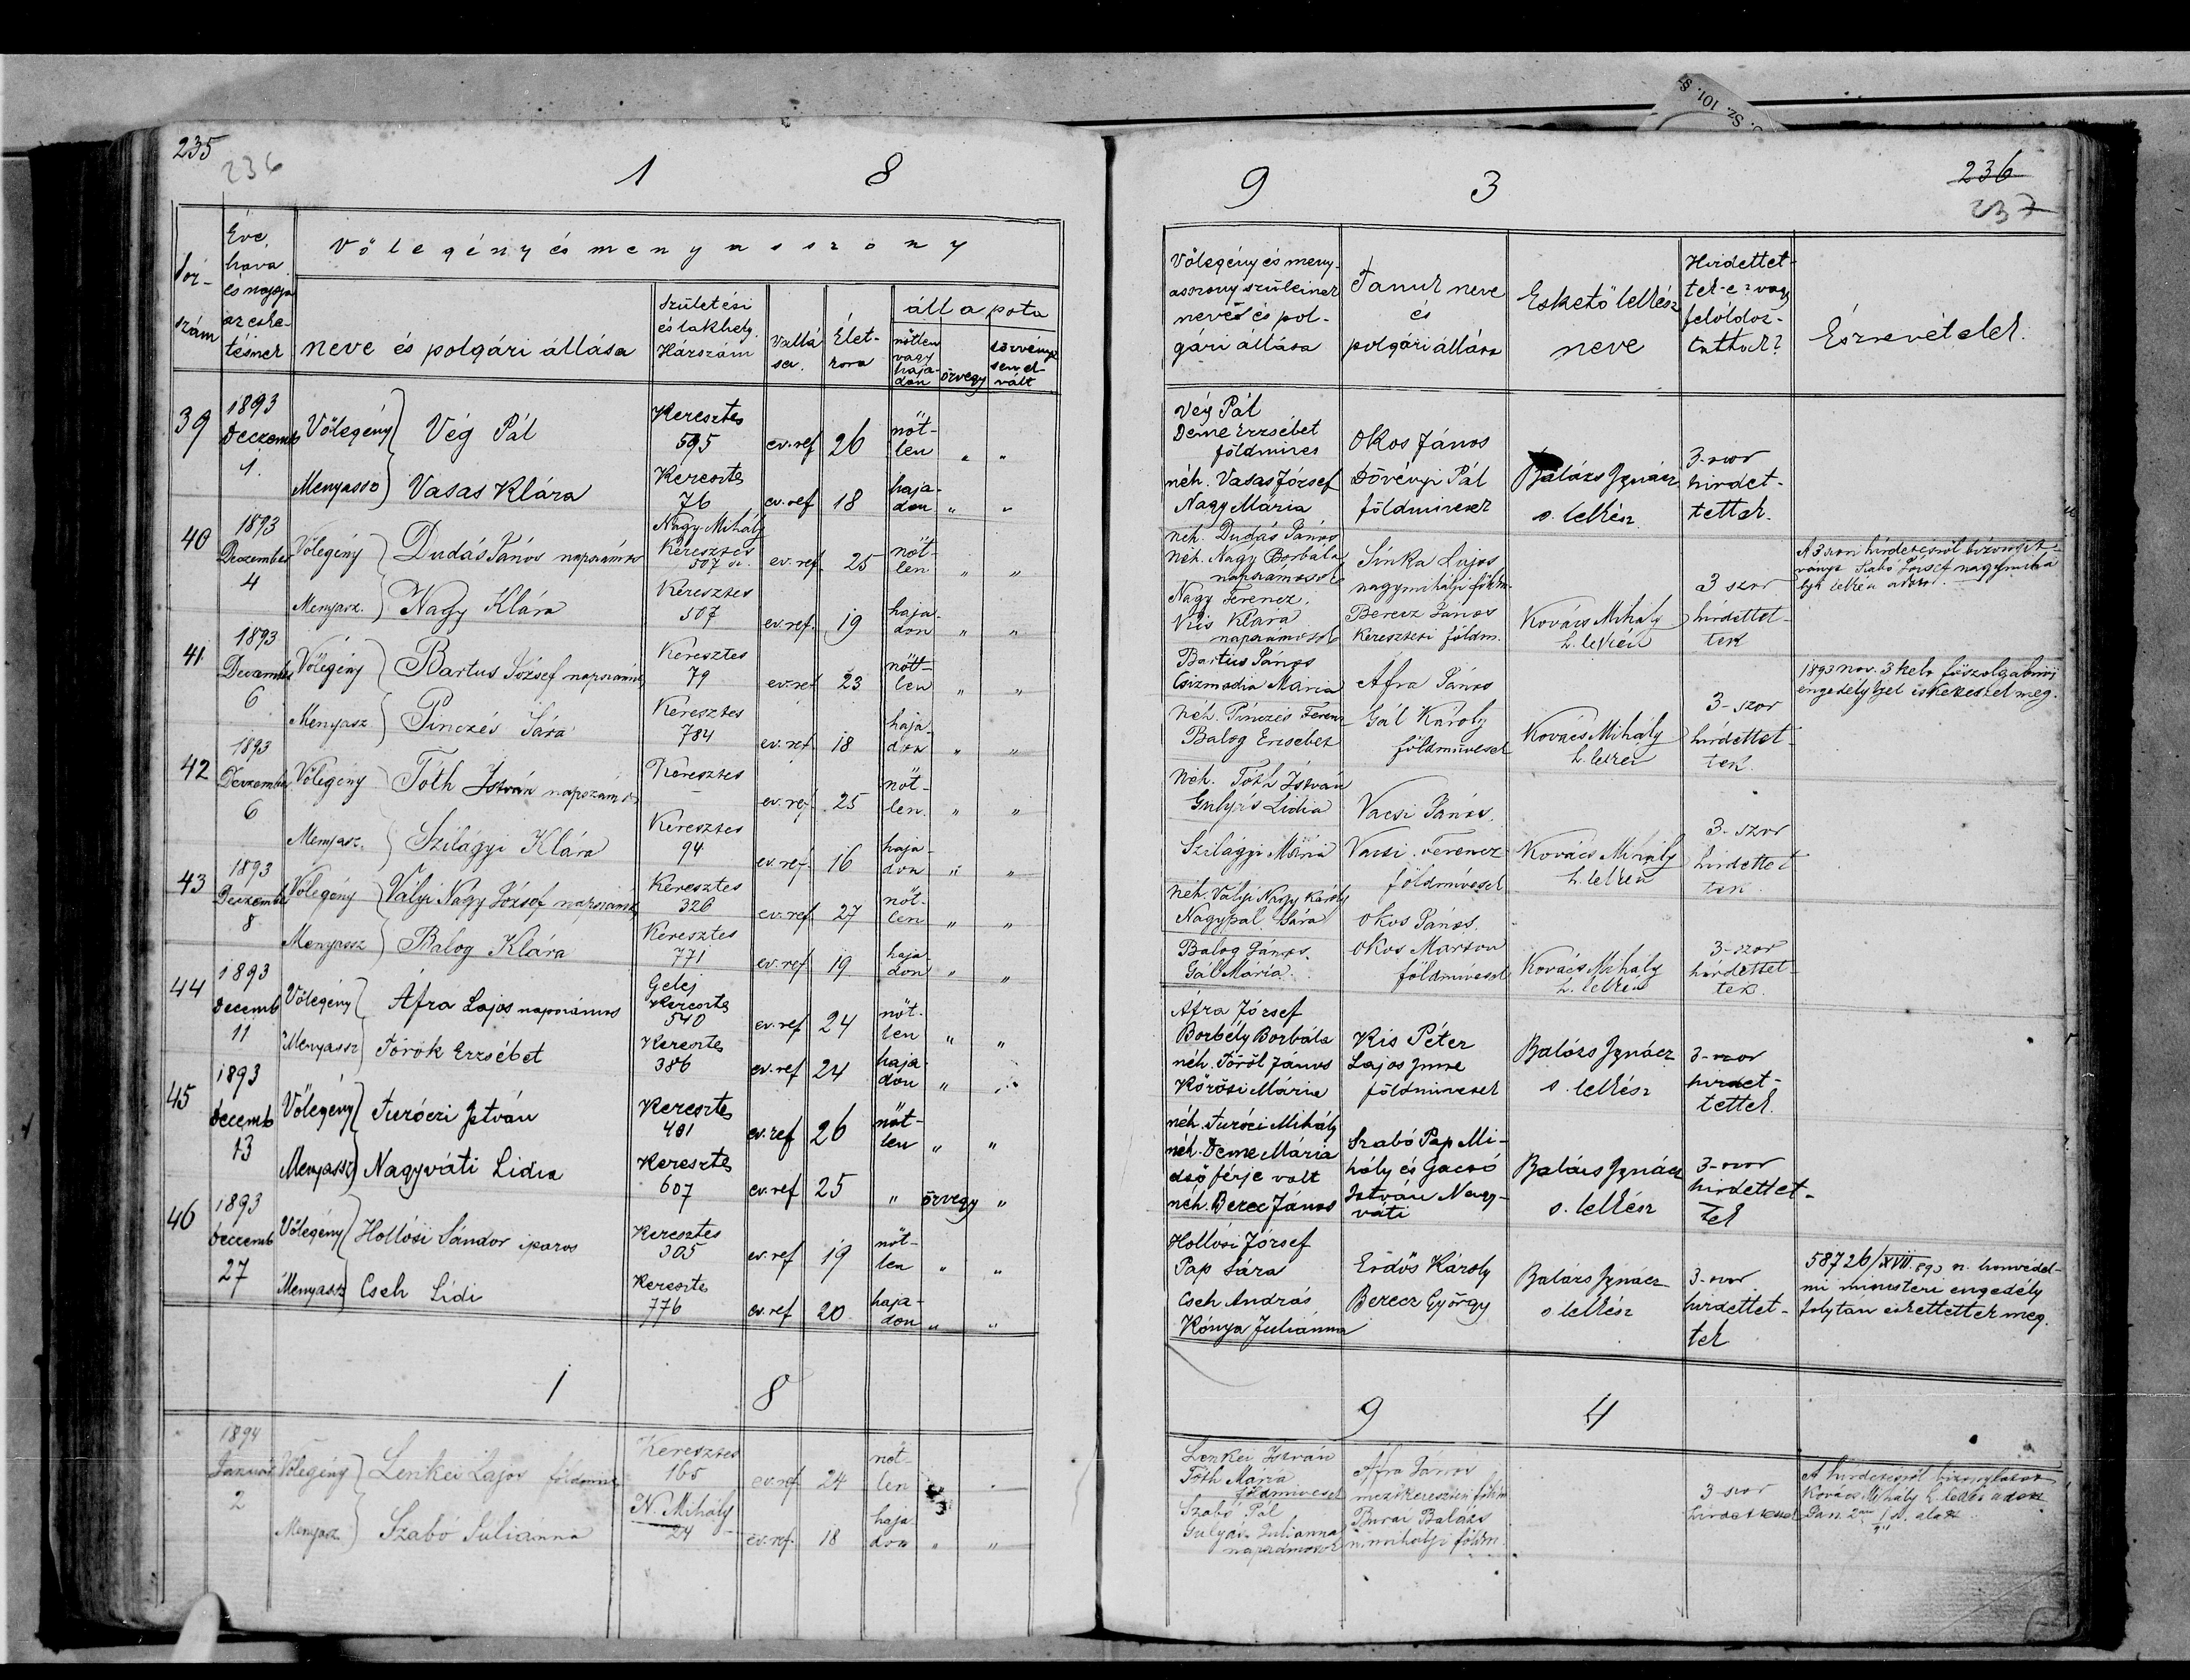 235
236
1 8
Sorszám
Éve, hava és napja az esketésnek
Vőlegény és menyasszony
neve és polgári állása
Születési és lakhely. Házszám
Vallása.
Életkora
állapota
nőtlen vagy hajadon
özvegy
törvényesen elvált
39
1893 Deczemb 1.
Vőlegény Vég Pál
Keresztes 595
ev. ref 26 nőtlen " "
Menyassz Vasas Klára
Keresztes 76
ev. ref 18 hajadon " "
40
1893 Deczember 4
Vőlegény Dudás János napszámos
Nagy-Mihály Keresztes 507
ev. ref. 25 nőtlen " "
Menyasz. Nagy Klára
Keresztes 507
ev. ref. 19 hajadon " "
41.
1893 Deczember 6
Vőlegény Bartus József napszámos
Keresztes 79
ev. ref 23 nőttlen " "
Menyasz Pinczés Sára
Keresztes 784
ev. ref. 18 hajadon " "
42
1893 Deczember 6
Vőlegény Tóth István napszámos
Keresztes –
ev. ref. 25 nőtlen. " "
Menyasz. Szilágyi Klára
Keresztes 94
ev. ref. 16 hajadon " "
43
1893 Deczember 8
Vőlegény Vályi Nagy József napszámos
Keresztes 326
ev. ref 27 nőtlen " "
Menyassz Balog Klára
Keresztes 771
ev. ref 19 hajadon " "
44
1893 Decemb 11
Vőlegény Áfra Lajos napszámos
Gelej Keresztes 540
ev. ref 24 nőtlen " "
Menyassz Török Erzsébet
Keresztes 386
ev. ref 24 hajadon " "
45
1893 Decemb 13
Vőlegény Turóczi István
Keresztes 401
ev. ref 26 nőtlen " "
Menyassz Nagyváti Lidia
Keresztes 607
ev. ref 25 " özvegy "
46
1893 Deczemb 27
Vőlegény Hollósi Sándor iparos
Keresztes 305
ev. ref 19 nőtlen " "
Menyassz Cseh Lídi
Keresztes 776
ev. ref 20 hajadon " "
1 8
1894 Január 2
Vőlegény Lenkei Lajos földmíves
Keresztes 165
ev. ref 24 nőtlen
Menyasz. Szabó Juliánna
N. Mihály 24
ev. ref. 18 hajadon " "
9 3
236
237
Vőlegény és menyasszony szüleinek nevei és polgári állása
Tanuk neve és polgári állása
Eskető lelkész neve
Hirdettettek-e? vagy felóldoztattak?
Észrevételek.
Vég Pál
Deme Erzsébet
földmíves
néh. Vasas József
Nagy Mária
Okos János
Dövényi Pál
földmivesek
Balázs Ignácz
s. lelkész
3-szor hirdettettek.
néh. Dudás János
néh. Nagy Borbála
napszámosok
Nagy Ferencz.
Kis Klára
napszámosok
Sinka Lajos
nagymihályi földm.
Berecz János
Keresztesi földm.
Kovács Mihály
h. lelkész
3 szor hirdettettek
A 3 szori hirdetésről bizonyitványt Szabó József nagymihályi lelkész adott.
Bartus János
Csizmadia Mária
néh. Pinczés Ferencz
Balog Erzsébet
Áfra János
Gál Károly
földmívesek
Kovács Mihály
h. lelkész
3-szor hirdettettek.
1893 nov. 3 kelt főszolgabirói
engedélylyel eskettettek meg.
néh. Tóth István
Gulyás Lidia
Szilágyi Mária
Vacsi János.
Vacsi Ferencz
földmívesek
Kovács Mihály
h. lelkész
3-szor hirdettettek
néh. Vályi Nagy Károly
Nagypál Sára
Balog János.
Gál Mária.
Okos János.
Okos Márton
földmívesek
Kovács Mihály
h. lelkész
3-szor hirdettettek.
Áfra József
Borbély Borbála
néh. Török János
Kőrösi Mária
Kis Péter
Lajos Imre
földmivesek
Balázs Ignácz
s. lelkész
3-szor hirdettettek.
néh. Turóci Mihály
néh. Deme Mária
első férje volt
néh. Berec János
Szabó Pap Mihály és Gacsó
István Nagyváti
Balázs Ignácz
s. lelkész
3-szor hirdettettek
Hollósi József
Pap Sára
Cseh András
Kónya Julianna
Erdős Károly
Berecz György
Balázs Ignácz
s lelkész
3-szor hirdettettek
58726/XVII. 893 sz. honvédelmi ministeri engedély
folytán eskettettek meg.
9 4
Lenkei István
Tóth Mária
földmivesek
Szabó Pál
Gulyás Julianna
napszámosok
Áfra János
mezőkeresztesi földm
Burai Balázs
n. mihályi földm.
3-szor hirdettettek
A hirdetésről bizonylatot
Kovács Mihály h. lelkész adott
Jan. 2án